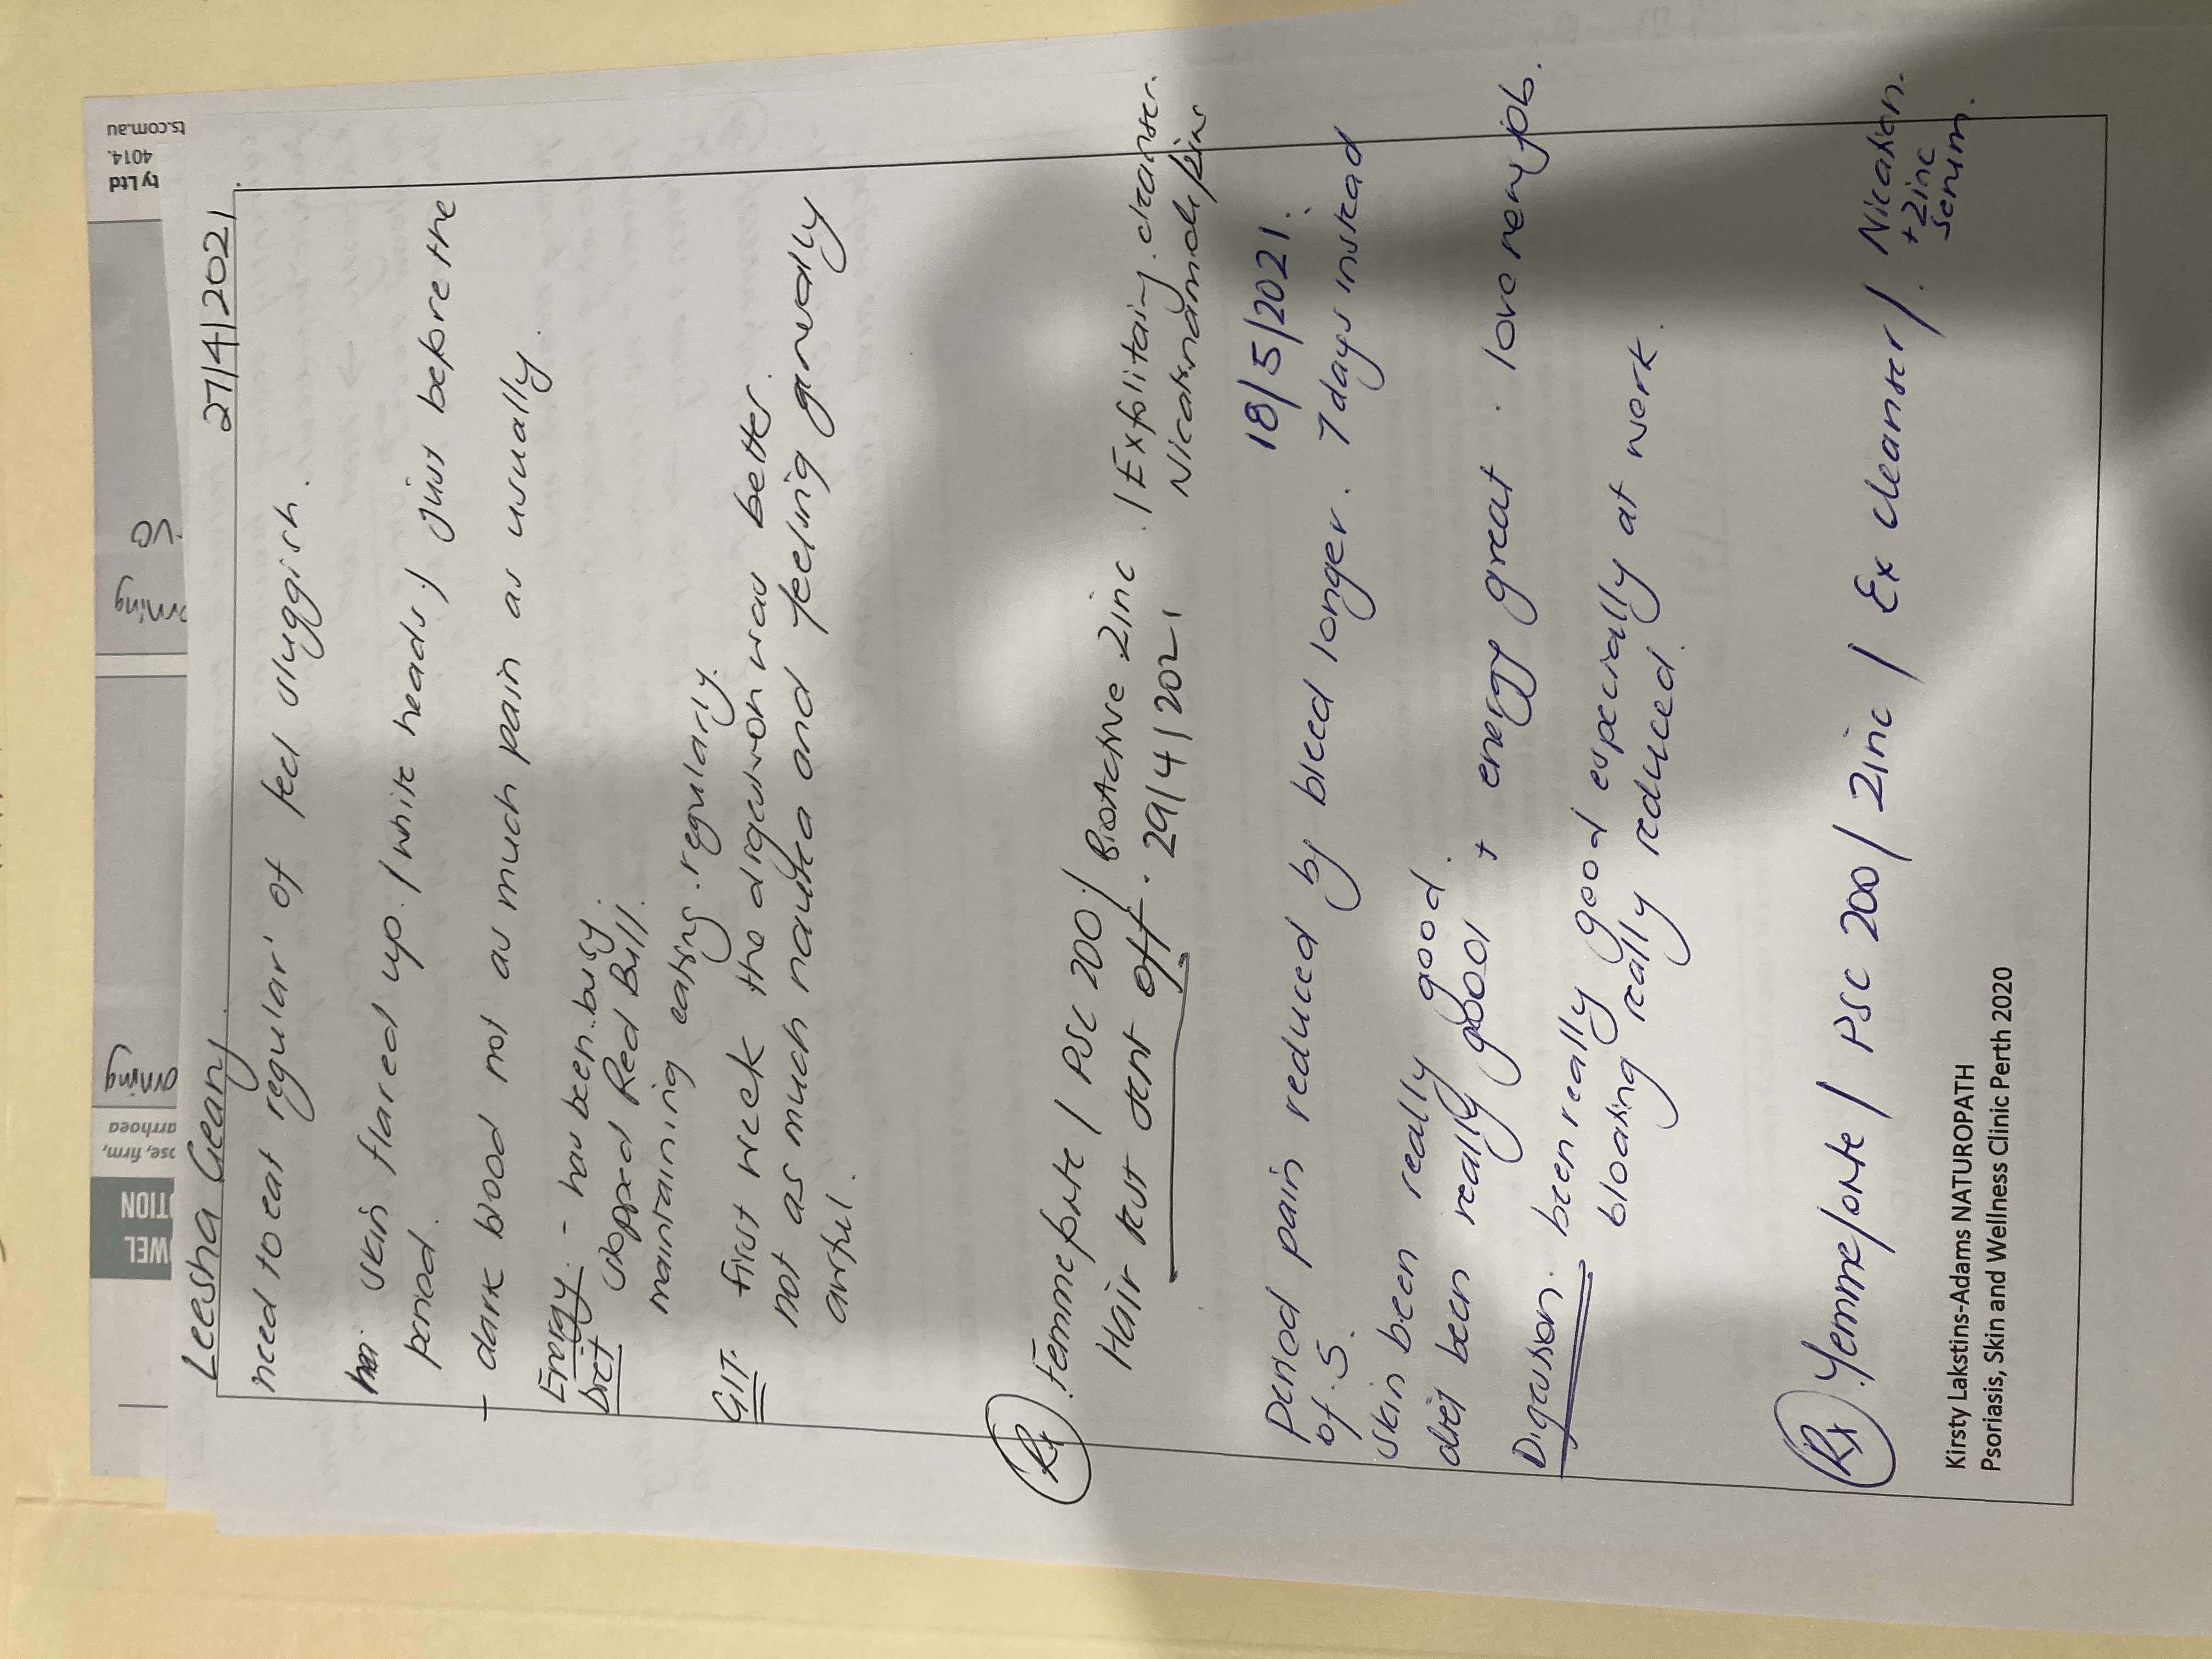 Leesha Geany. 27/4/2021
need to eat regular' of feel sluggish.
skin flared up. (white heads.) just before the
period.
- dark blood not as much pain as usually.
Energy. - has been busy.
Diet stopped Red Bull.
maintaining eating regularly.
GIT. first week the digestion was better.
not as much nausea and feeling generally
awful.
Rx Femmeforte / PSC 200 / BioActive Zinc. / Exfolitaing. cleanser.
Hair test sent off. 29/4/2021
18/5/2021.
Period pain reduced by bleed longer. 7 days instead
of 5.
Skin been really good.
diet been really good + energy great. love new job.
Digestion. been really good especially at work.
bloating really reduced.
Rx Femmeforte / PSC 200 / Zinc / Ex cleanser /
+ Zinc
serum.
Kirsty Lakstins-Adams NATUROPATH
Psoriasis, Skin and Wellness Clinic Perth 2020
ts.com.au
4014.
ty Ltd